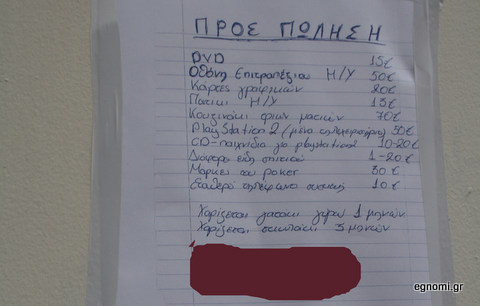 ΠΡΟΣ ΠΩΛΗΣΗ
DVD 15€
Οθόνη Επιτραπέζιου Η/Υ 50€
Κάρτες γραφικών 20€
Πατίκι Η/Υ 15€
Κουζινάκι τριών ματιών 70€
PlayStation 2 (μόνο 50€
CD-παιχνίδια για playstation 10-20€
Διάφορα είδη σπιτιού 1-20€
Μάρκες του poker 30€
Σταθερό τηλέφωνο συσκευή 10€
Χαρίζεται γατάκι γύρω 1 μηνών
Χαρίζεται σκυλάκι 3 μηνών
egnomi.gr